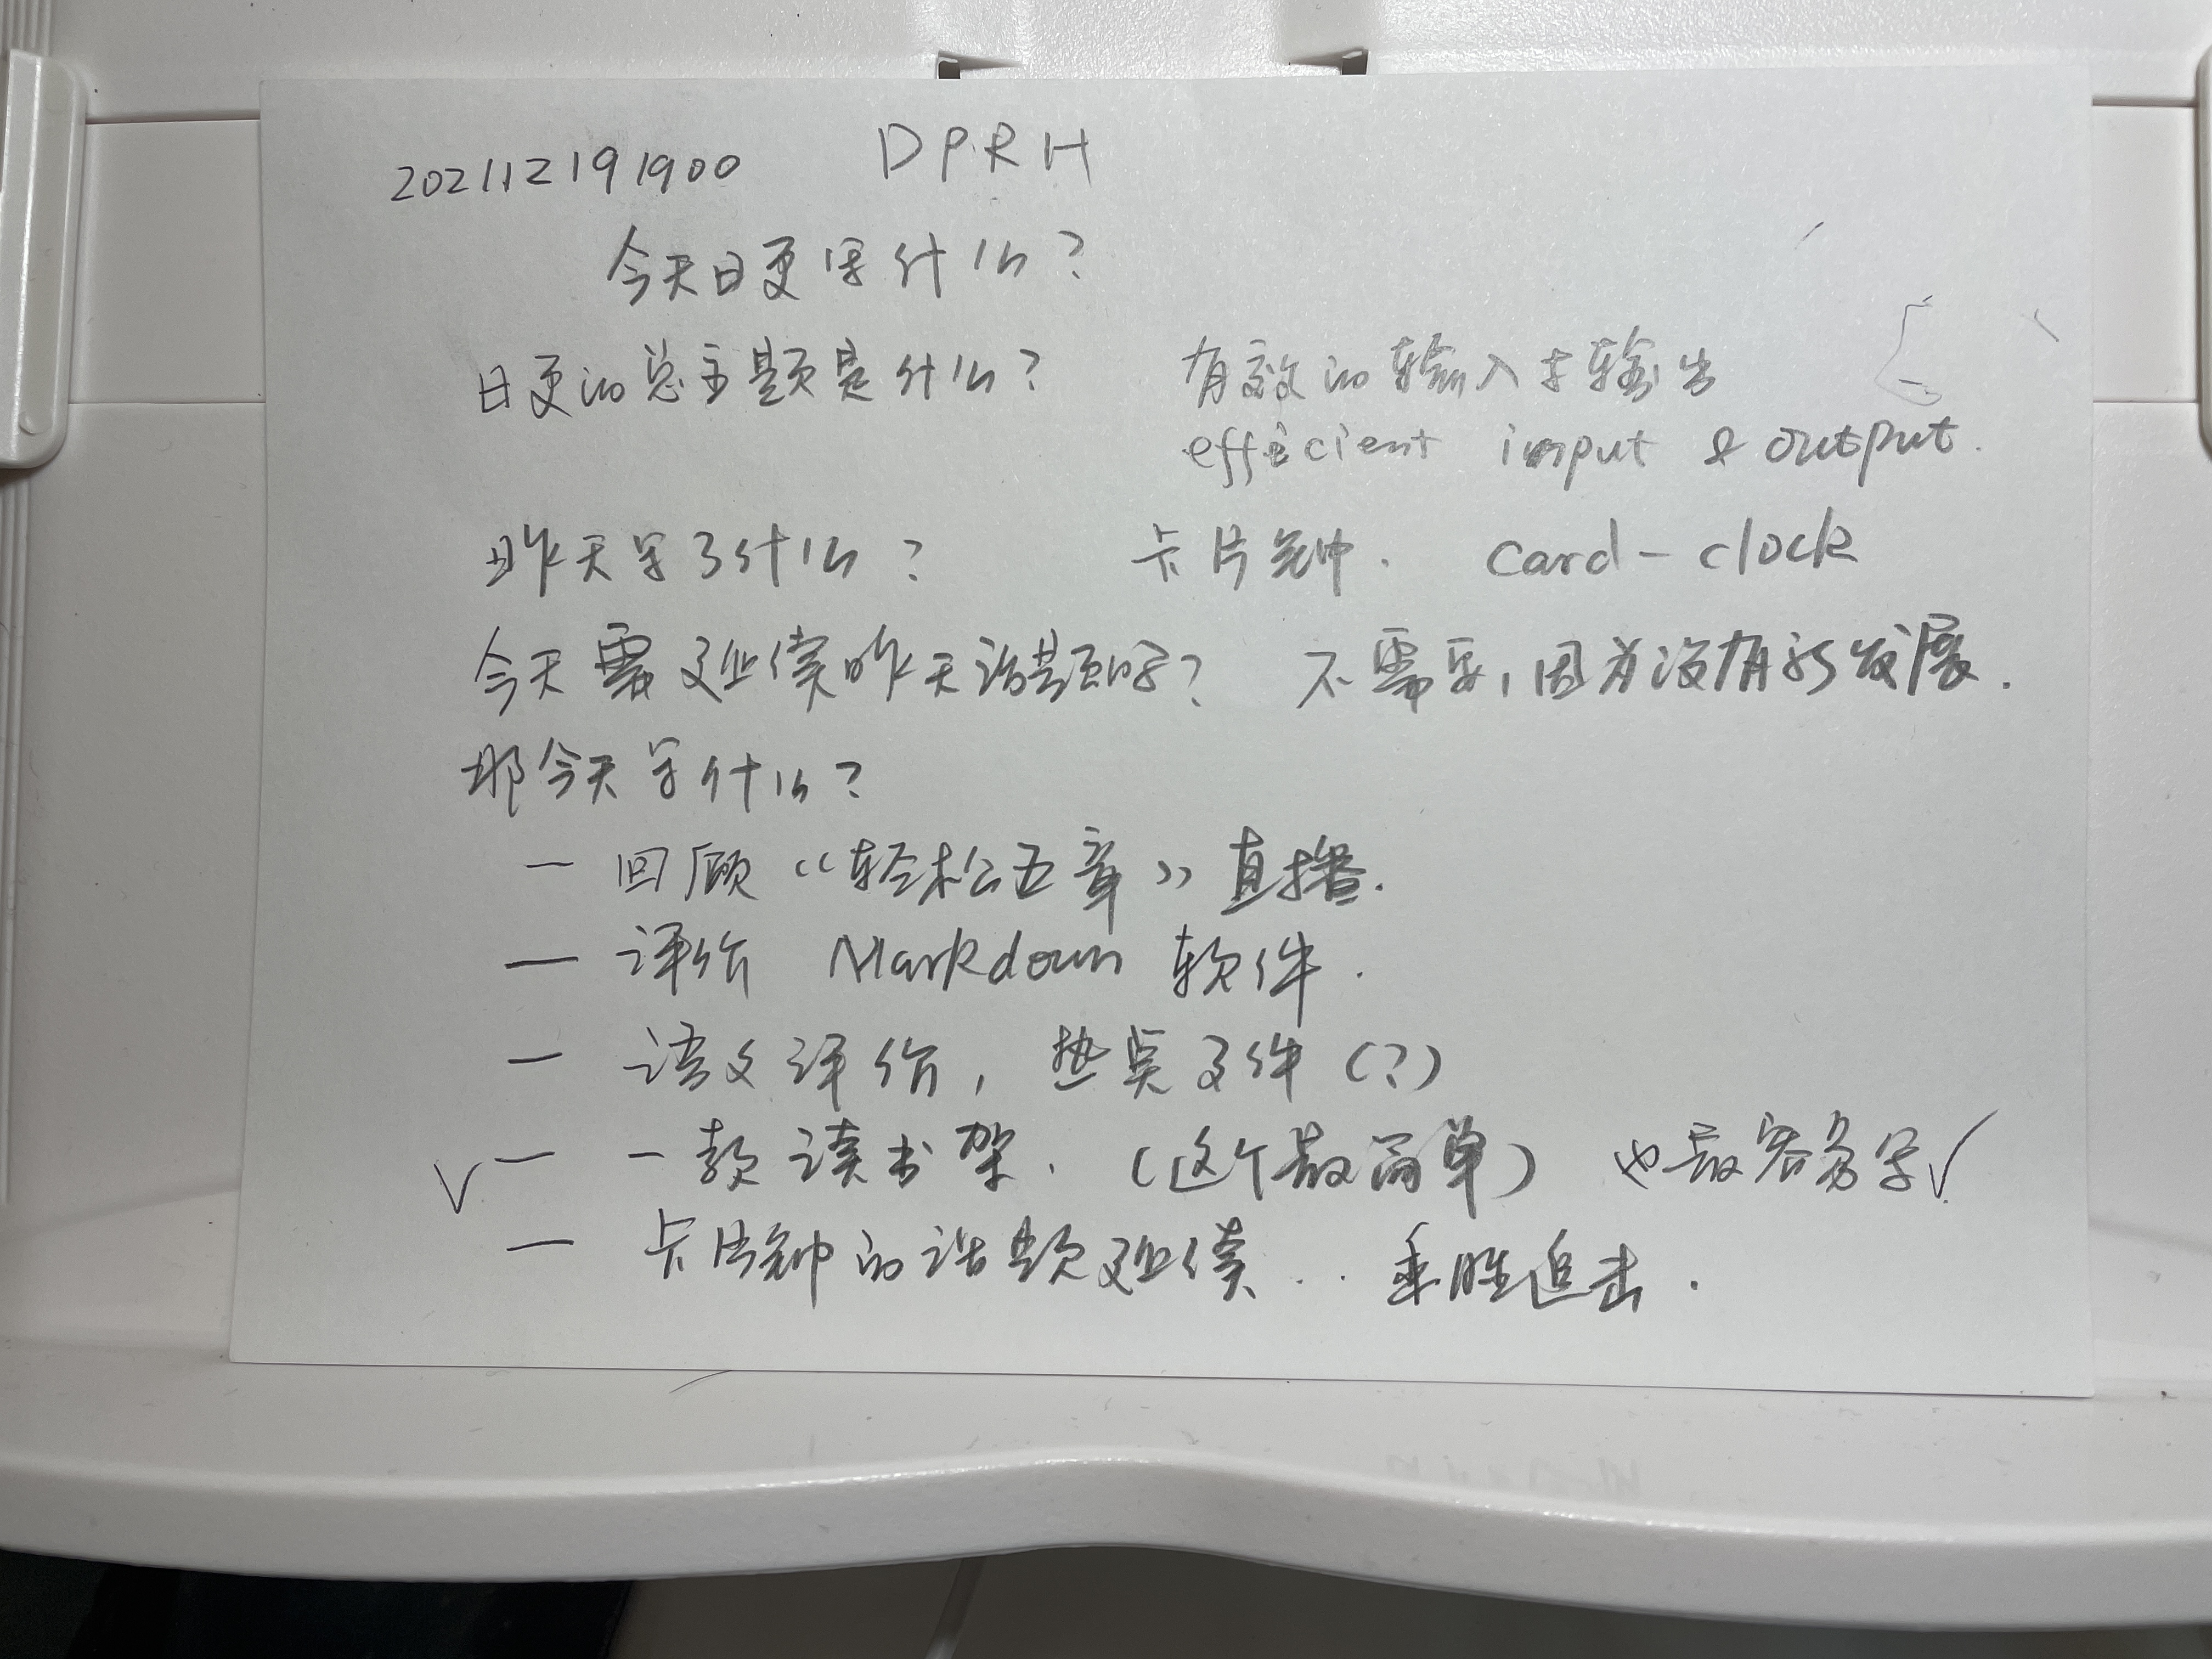 202112191900 DPRH
今天日更写什么?
日更的总主题是什么? 有效的输入与输出
efficient input & output.
昨天写了什么? 卡片钟. card-clock
今天需要延续昨天话题吗? 不需要,因为没有新发展.
那今天写什么?
— 回顾《轻松五章》直播.
— 评价 Markdown 软件.
— 语文评价, 文件(?)
√ — 一款读书架. (这个最简单) 也最容易写√
— 卡片钟的话题延续... 乘胜追击.